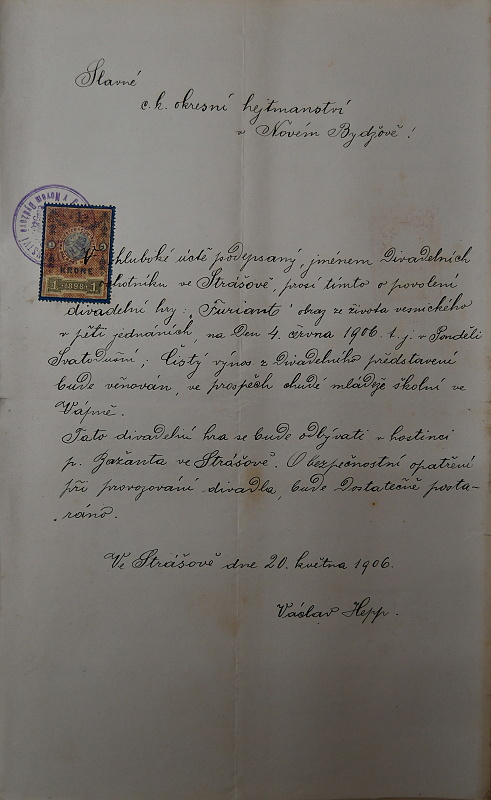 Slavné
c. k. okresní hejtmanství
v Novém Bydžově!
1 KRONE
1 1898 1
V hluboké úctě podepsaný, jménem Divadelních
ochotníku ve Strášově, prosí tímto o povolení
divadelní hry: „Furiant" obraz ze života vesnického
v pěti jednáních, na den 4. června 1906 t. j. v Pondělí
Svatodušní; Čistý výnos z Divadelního představení
bude věnován, ve prospěch chudé mládeže školní ve
Vápně.
Tato divadelní hra se bude odbývati v hostinci
p. Bažanta ve Strášově. O bezpečnostní opatření
při provozování divadla, bude dostatečně posta-
ráno.
Ve Strášově dne 20. května 1906.
Václav Hepp.